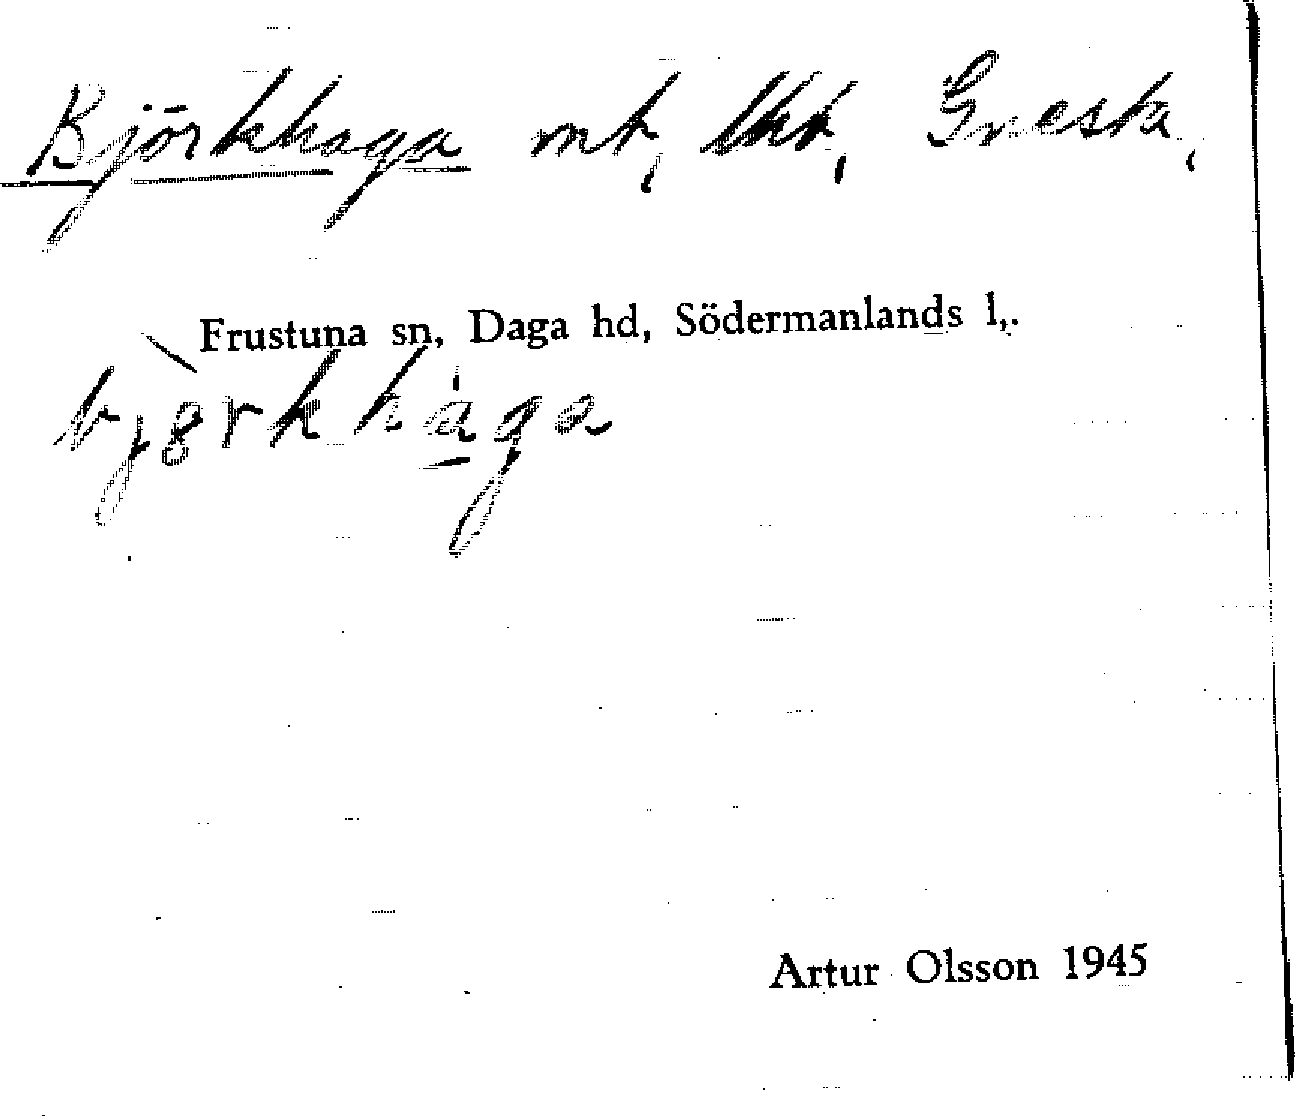 Björkhaga mt, lht, Gnesta,
Frustuna sn, Daga hd, Södermanlands l.
björkhaga
Artur Olsson 1945